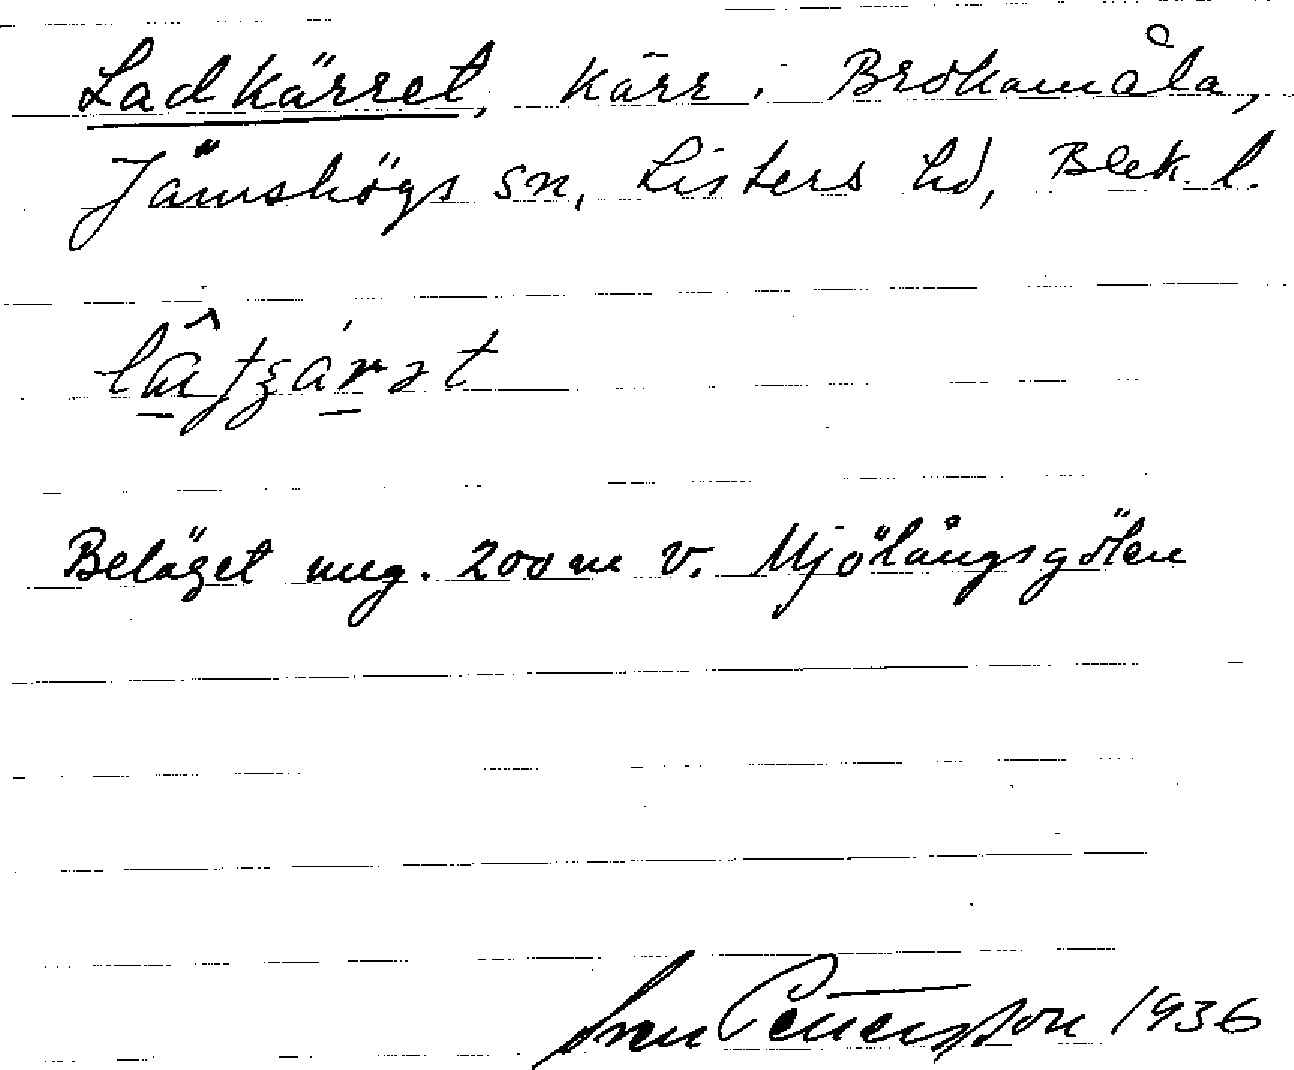 Ladkärret, kärr i Brokamåla,
Jämshögs sn, Listers hd, Blek. l.
Beläget ung. 200 m v. Mjölångsgölen
Sven Petersson 1936